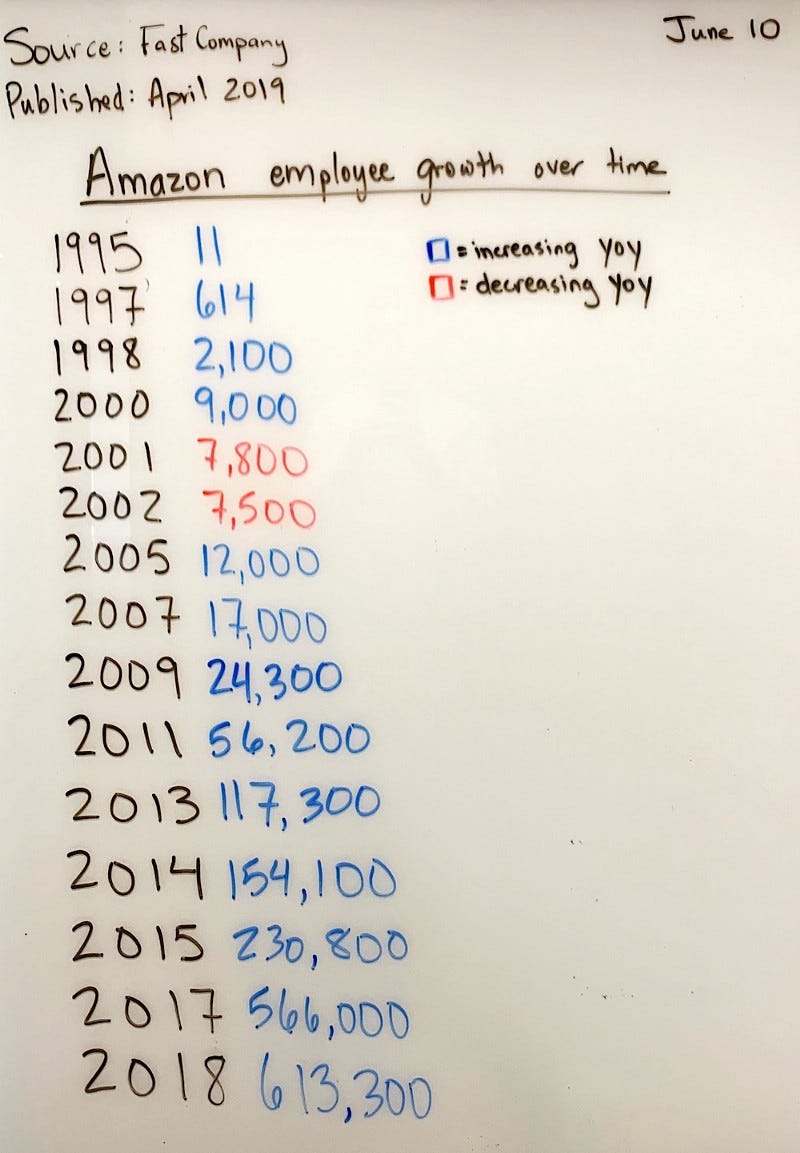 Source: Fast Company
June 10
Published: April 2019
Amazon employee growth over time
1995 11
= increasing yoy
1997 614
= decreasing yoy
1998 2,100
2000 9,000
2001 7,800
2002 7,500
2005 12,000
2007 17,000
2009 24,300
2011 56,200
2013 117,300
2014 154,100
2015 230,800
2017 566,000
2018 613,300